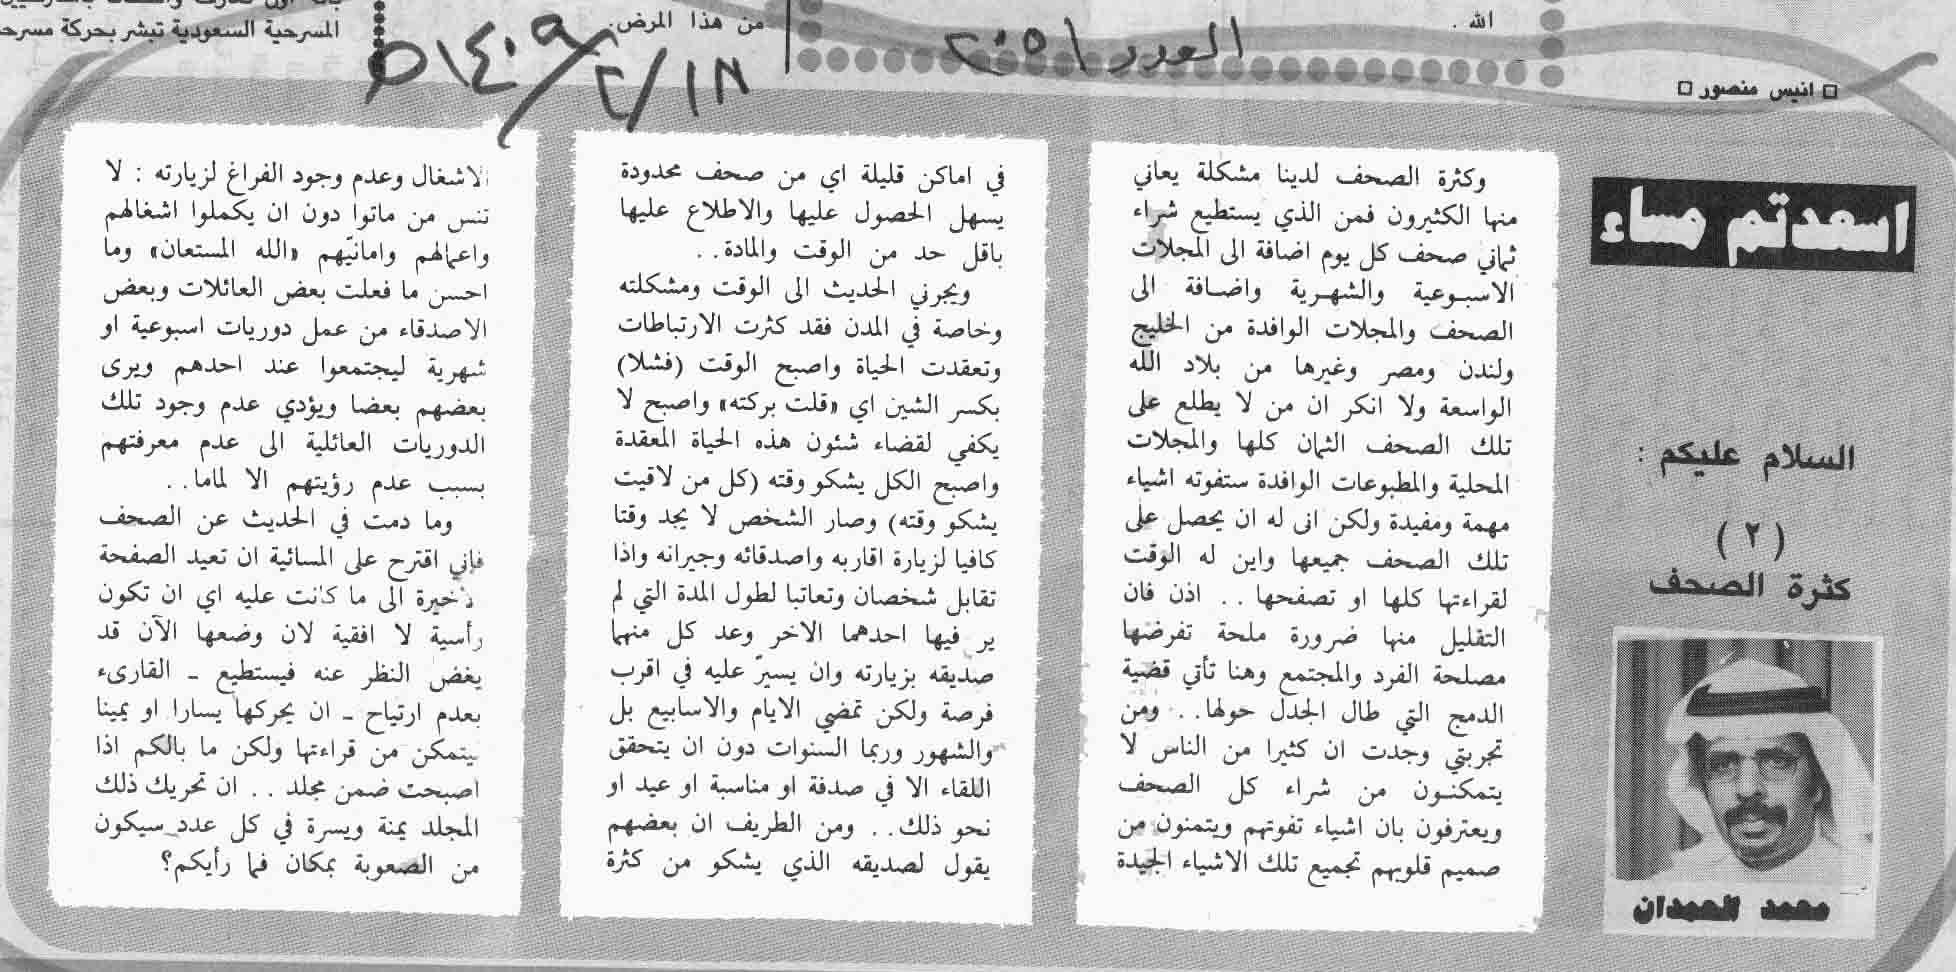 المسرحية السعودية تبشر بحركة
من هذا المرض.
الله .
العدد ٢٠٥١
١٨/٢/١٤٠٩هـ
□ انيس منصور □
اسعدتم مساء
السلام عليكم :
( ٢ )
كثرة الصحف
محمد الحمدان
وكثرة الصحف لدينا مشكلة يعاني
منها الكثيرون فمن الذي يستطيع شراء
ثماني صحف كل يوم اضافة الى المجلات
الاسبوعية والشهرية واضافة الى
الصحف والمجلات الوافدة من الخليج
ولندن ومصر وغيرها من بلاد الله
الواسعة ولا انكر ان من لا يطلع على
تلك الصحف الثمان كلها والمجلات
المحلية والمطبوعات الوافدة ستفوته اشياء
مهمة ومفيدة ولكن انى له ان يحصل على
تلك الصحف جميعها واين له الوقت
لقراءتها كلها او تصفحها . . اذن فان
التقليل منها ضرورة ملحة تفرضها
مصلحة الفرد والمجتمع وهنا تأتي قضية
الدمج التي طال الجدل حولها . . ومن
تجربتي وجدت ان كثيرا من الناس لا
يتمكنون من شراء كل الصحف
ويعترفون بان اشياء تفوتهم ويتمنون من
صميم قلوبهم تجميع تلك الاشياء الجيدة
في اماكن قليلة اي من صحف محدودة
يسهل الحصول عليها والاطلاع عليها
باقل حد من الوقت والمادة . .
ويجرني الحديث الى الوقت ومشكلته
وخاصة في المدن فقد كثرت الارتباطات
وتعقدت الحياة واصبح الوقت (فشلا)
بكسر الشين اي «قلت بركته» واصبح لا
يكفي لقضاء شئون هذه الحياة المعقدة
واصبح الكل يشكو وقته (كل من لاقيت
يشكو وقته) وصار الشخص لا يجد وقتا
كافيا لزيارة اقاربه واصدقائه وجيرانه واذا
تقابل شخصان وتعاتبا لطول المدة التي لم
ير فيها احدهما الاخر وعد كل منهما
صديقه بزيارته وان يسيّر عليه في اقرب
فرصة ولكن تمضي الايام والاسابيع بل
والشهور وربما السنوات دون ان يتحقق
اللقاء الا في صدفة او مناسبة او عيد او
نحو ذلك . . ومن الطريف ان بعضهم
يقول لصديقه الذي يشكو من كثرة
الاشغال وعدم وجود الفراغ لزيارته : لا
تنس من ماتوا دون ان يكملوا اشغالهم
واعمالهم وامانيّهم «الله المستعان» وما
احسن ما فعلت بعض العائلات وبعض
الاصدقاء من عمل دوريات اسبوعية او
شهرية ليجتمعوا عند احدهم ويرى
بعضهم بعضا ويؤدي عدم وجود تلك
الدوريات العائلية الى عدم معرفتهم
بسبب عدم رؤيتهم الا لماما . .
وما دمت في الحديث عن الصحف
فإني اقترح على المسائية ان تعيد الصفحة
الى ما كانت عليه اي ان تكون
رأسية لا افقية لان وضعها الآن قد
يغض النظر عنه فيستطيع - القارىء
بعدم ارتياح - ان يحركها يسارا او يمينا
ليتمكن من قراءتها ولكن ما بالكم اذا
اصبحت ضمن مجلد . . ان تحريك ذلك
المجلد يمنة ويسرة في كل عدد سيكون
من الصعوبة بمكان فما رأيكم؟